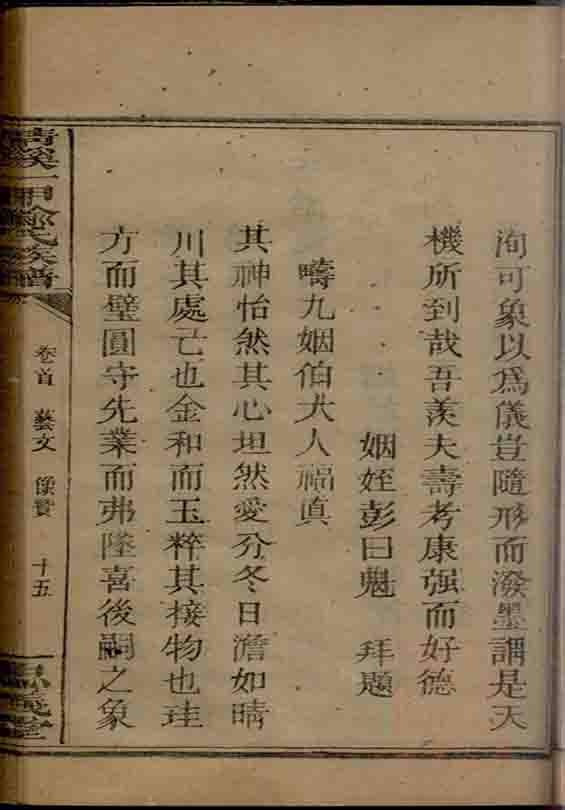 洵可象以爲儀豈隨形而潑墨謂是天
機所到哉吾羨夫壽考康强而好德
姻姪彭曰魁 拜題
疇九姻伯大人福真
其神怡然其心坦然愛分冬日澹如晴
川其處己也金和而玉粹其接物也珪
方而璧圓守先業而弗墜喜後嗣之象
清溪一甲鄒氏族譜
卷首 藝文 像贊 十五